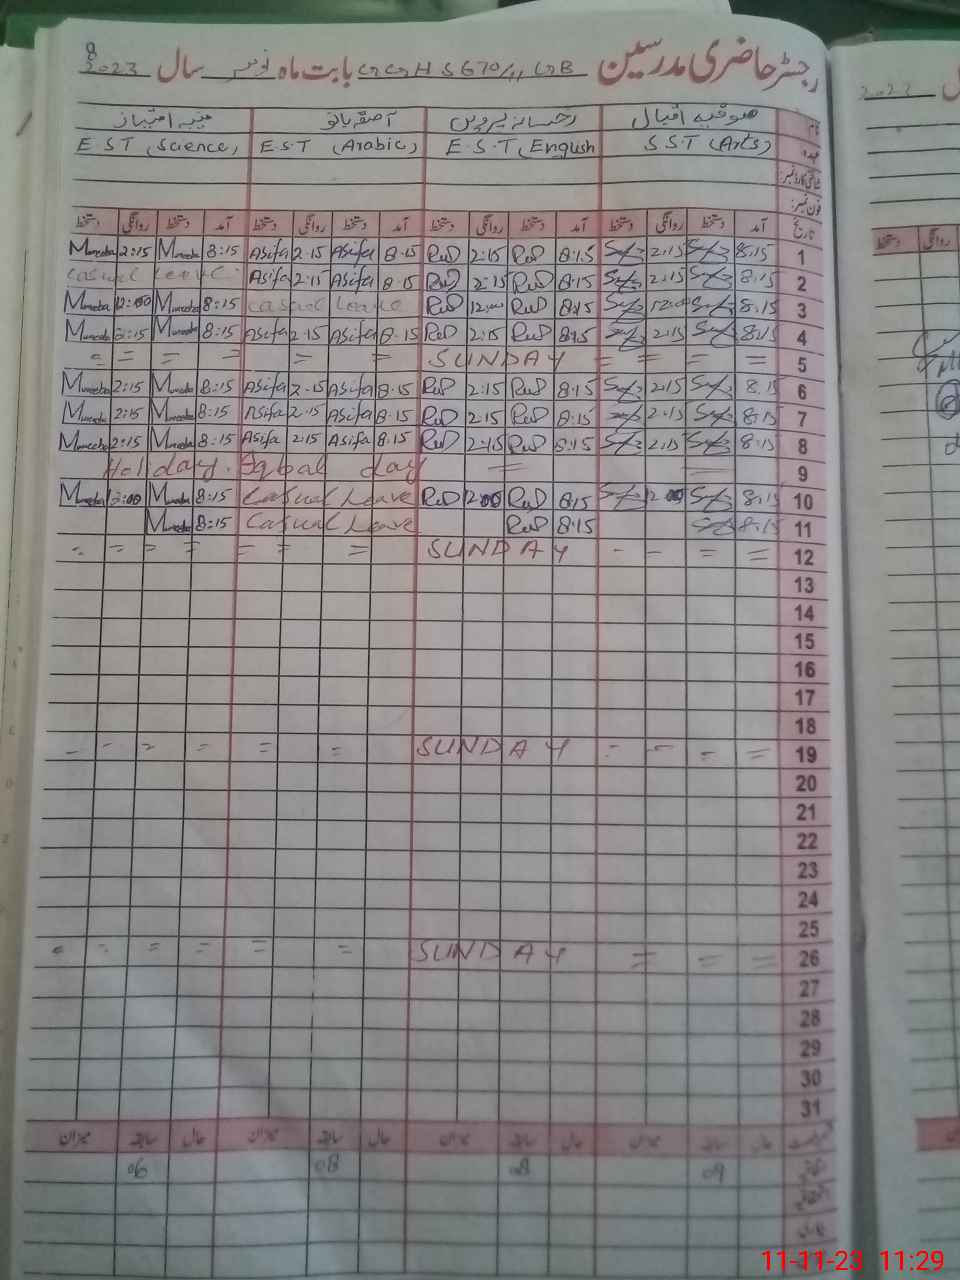 رجسٹر حاضری مدرسین GGHS 670/11 GB بابت ماہ نومبر سال 2023
نام صوفیہ اقبال رخسانہ پروین آصفہ بانو منیبہ امتیاز
عہدہ S.S.T (Arts) E.S.T (English E.S.T (Arabic) E.S.T (Science)
شناختی کارڈ نمبر:
فون نمبر:
تاریخ آمد دستخط روانگی دستخط آمد دستخط روانگی دستخط آمد دستخط روانگی دستخط آمد دستخط روانگی دستخط
Muneeba 2:15 Muneeba 8:15 Asifa 2.15 Asifa 8.15 RuP 2:15 RuP 8:15 2:15 8:15 1
casual leave Asifa 2.15 Asifa 8.15 RuP 2:15 RuP 8:15 2:15 8:15 2
Muneeba 12:00 Muneeba 8:15 casual leave RuP 12:00 RuP 8:15 12:00 8:15 3
Muneeba 2:15 Muneeba 8:15 Asifa 2.15 Asifa 8.15 RuP 2:15 RuP 8:15 2:15 8:15 4
= = = = = = SUNDAY = = = = 5
Muneeba 2:15 Muneeba 8:15 Asifa 2.15 Asifa 8.15 RuP 2:15 RuP 8:15 2:15 8:15 6
Muneeba 2:15 Muneeba 8:15 Asifa 2.15 Asifa 8.15 RuP 2:15 RuP 8:15 2:15 8:15 7
Muneeba 2:15 Muneeba 8:15 Asifa 2:15 Asifa 8.15 RuP 2:15 RuP 8:15 2:15 8:15 8
Holiday. Iqbal day = = 9
Muneeba 12:00 Muneeba 8:15 Casual Leave RuP 12:00 RuP 8:15 12:00 8:15 10
Muneeba 8:15 Casual Leave RuP 8:15 8:15 11
= = = = = = = SUNDAY - - = = 12
13
14
15
16
17
18
- - = - = = SUNDAY - - = = 19
20
21
22
23
24
25
= - = = = = SUNDAY = = = 26
27
28
29
30
31
حال سابقہ میزان حال سابقہ میزان حال سابقہ میزان حال سابقہ میزان
اتفاقیہ 09 08 08 06
11-11-23 11:29